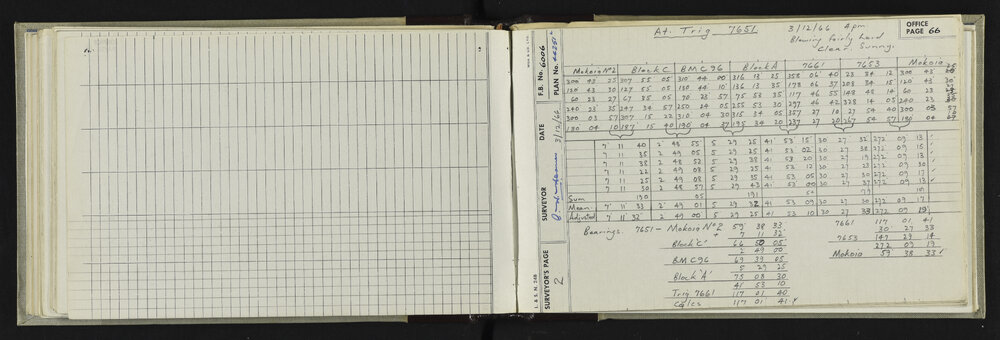 At. Trig 7651
3/12/64 4pm
Blowing fairly hard
Clear. Sunny.
OFFICE PAGE 66
F.B. No. 6006
PLAN No. 44251
DATE 3/12/64
SURVEYOR
SURVEYOR'S PAGE 2
L. & S. N. 24B
Mokoio Nº2 Block C BMC 96 Block A 7661 7653 Mokoio
300 43 25 307 55 05 310 44 00 316 13 25 358 06 40 28 34 12 300 43
120 43 30 127 55 05 130 44 10 136 13 35 178 06 37 208 34 15 120 43 30
60 23 27 67 35 05 70 23 57 75 53 35 117 46 55 148 14 60 23
240 23 35 247 34 57 250 24 05 255 53 30 297 46 42 328 14 05 240 23
300 03 57 307 15 22 310 04 30 315 34 05 357 27 10 27 54 40 300 03 57
180 04 10 187 15 40 190 04 37 195 34 20 237 27 20 267 54 57 180 04
7 11 40 2 48 55 5 29 25 41 53 15 30 27 32 272 09 13
7 11 35 2 49 05 5 29 25 41 53 02 30 27 38 272 09 15
7 11 38 2 48 52 5 29 38 41 53 20 30 27 19 272 09 13
7 11 22 2 49 08 5 29 25 41 53 12 30 27 23 272 09 30
7 11 25 2 49 08 5 29 35 41 53 05 30 27 30 272 09 17
7 11 30 2 48 57 5 29 43 41 53 00 30 27 37 272 09 13
Sum 190 05 191
Mean 7 11 33 2 49 01 5 29 32 41 53 09 30 27 30 272 09 17
Adjusted 7 11 32 2 49 00 5 29 25 41 53 10 30 27 33 272 09 19
Bearings. 7651 - Mokoio Nº2 59 38 33
+ 7 11 32
Block 'C' 66 50 05
2 49 00
BMC 96 69 39 05
5 29 25
Block 'A' 75 08 30
41 53 10
Trig 7661 117 01 40
Calcs 117 01 41
7661 117 01 41
30 27 33
7653 147 29 14
272 09 19
Mokoio 59 38 33